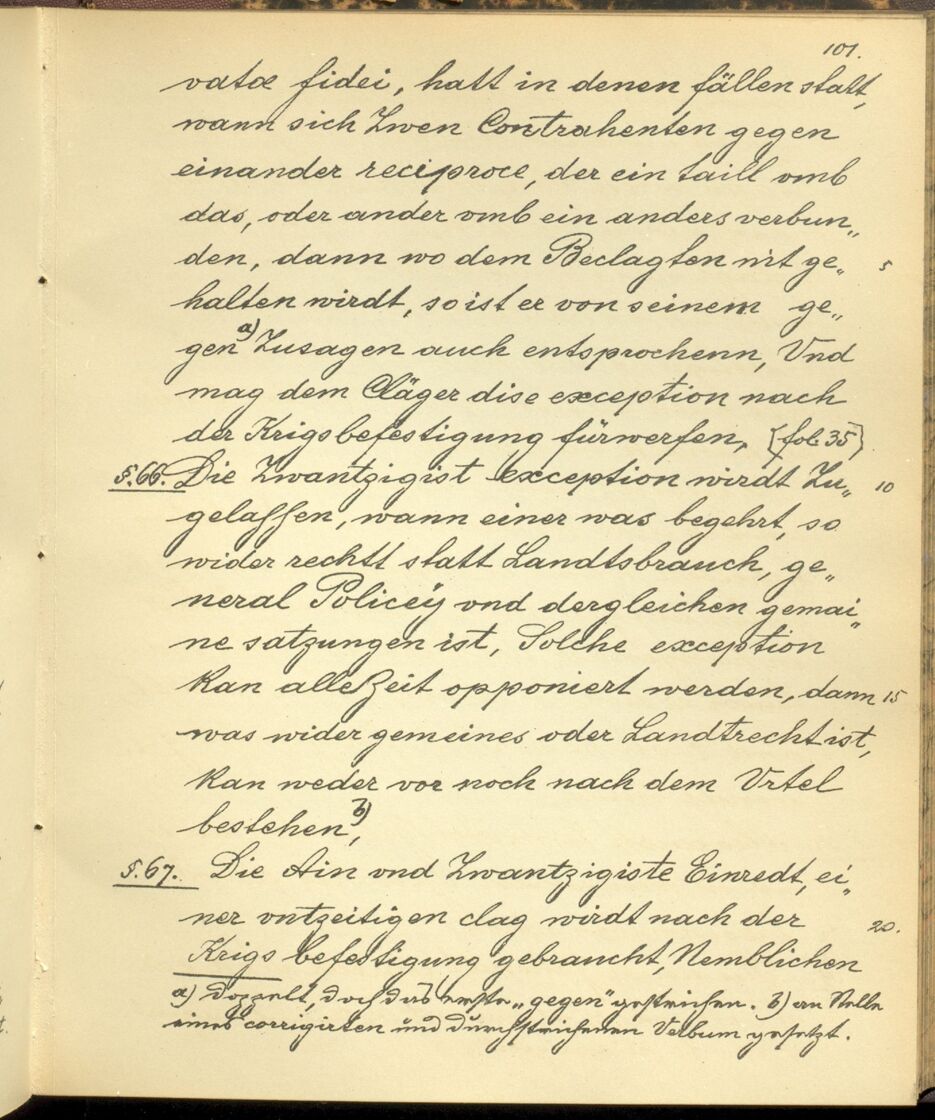 101.
vatæ fidei, hatt in denen fällen statt,
wann sich Zwen Contrahenten gegen
einander reciproce, der ein taill vmb
das, oder ander vmb ein anders verbun„
den, dann wo dem Beclagten nit ge„ 5
halten wirdt, so ist er von seinem ge„
gen a) Zusagen auch entsprochenn, Vnd
mag dem Cläger dise exception nach
der Krigsbefestigung fürwerfen, [fol. 35]
§. 66. Die Zwantzigist exception wirdt Zu„ 10
gelassen, wann einer was begehrt, so
wider rechtt statt Landtsbrauch, ge„
neral Policeÿ vnd dergleichen gemai„
ne satzungen ist, Solche exception
kan alle Zeit opponiert werden, dann 15
was wider gemeines oder Landtrecht ist,
kan weder vor noch nach dem Vrtel
bestehen b),
§. 67. Die Ain vnd Zwantzigiste Einredt, ei„
ner vntzeitigen clag wirdt nach der 20.
Krigs befestigung gebraucht, Nemblichen
a) doppelt, doch das erste „gegen" gestrichen. b) an Stelle
eines corrigirten und durchstrichenen Verbum gesetzt.